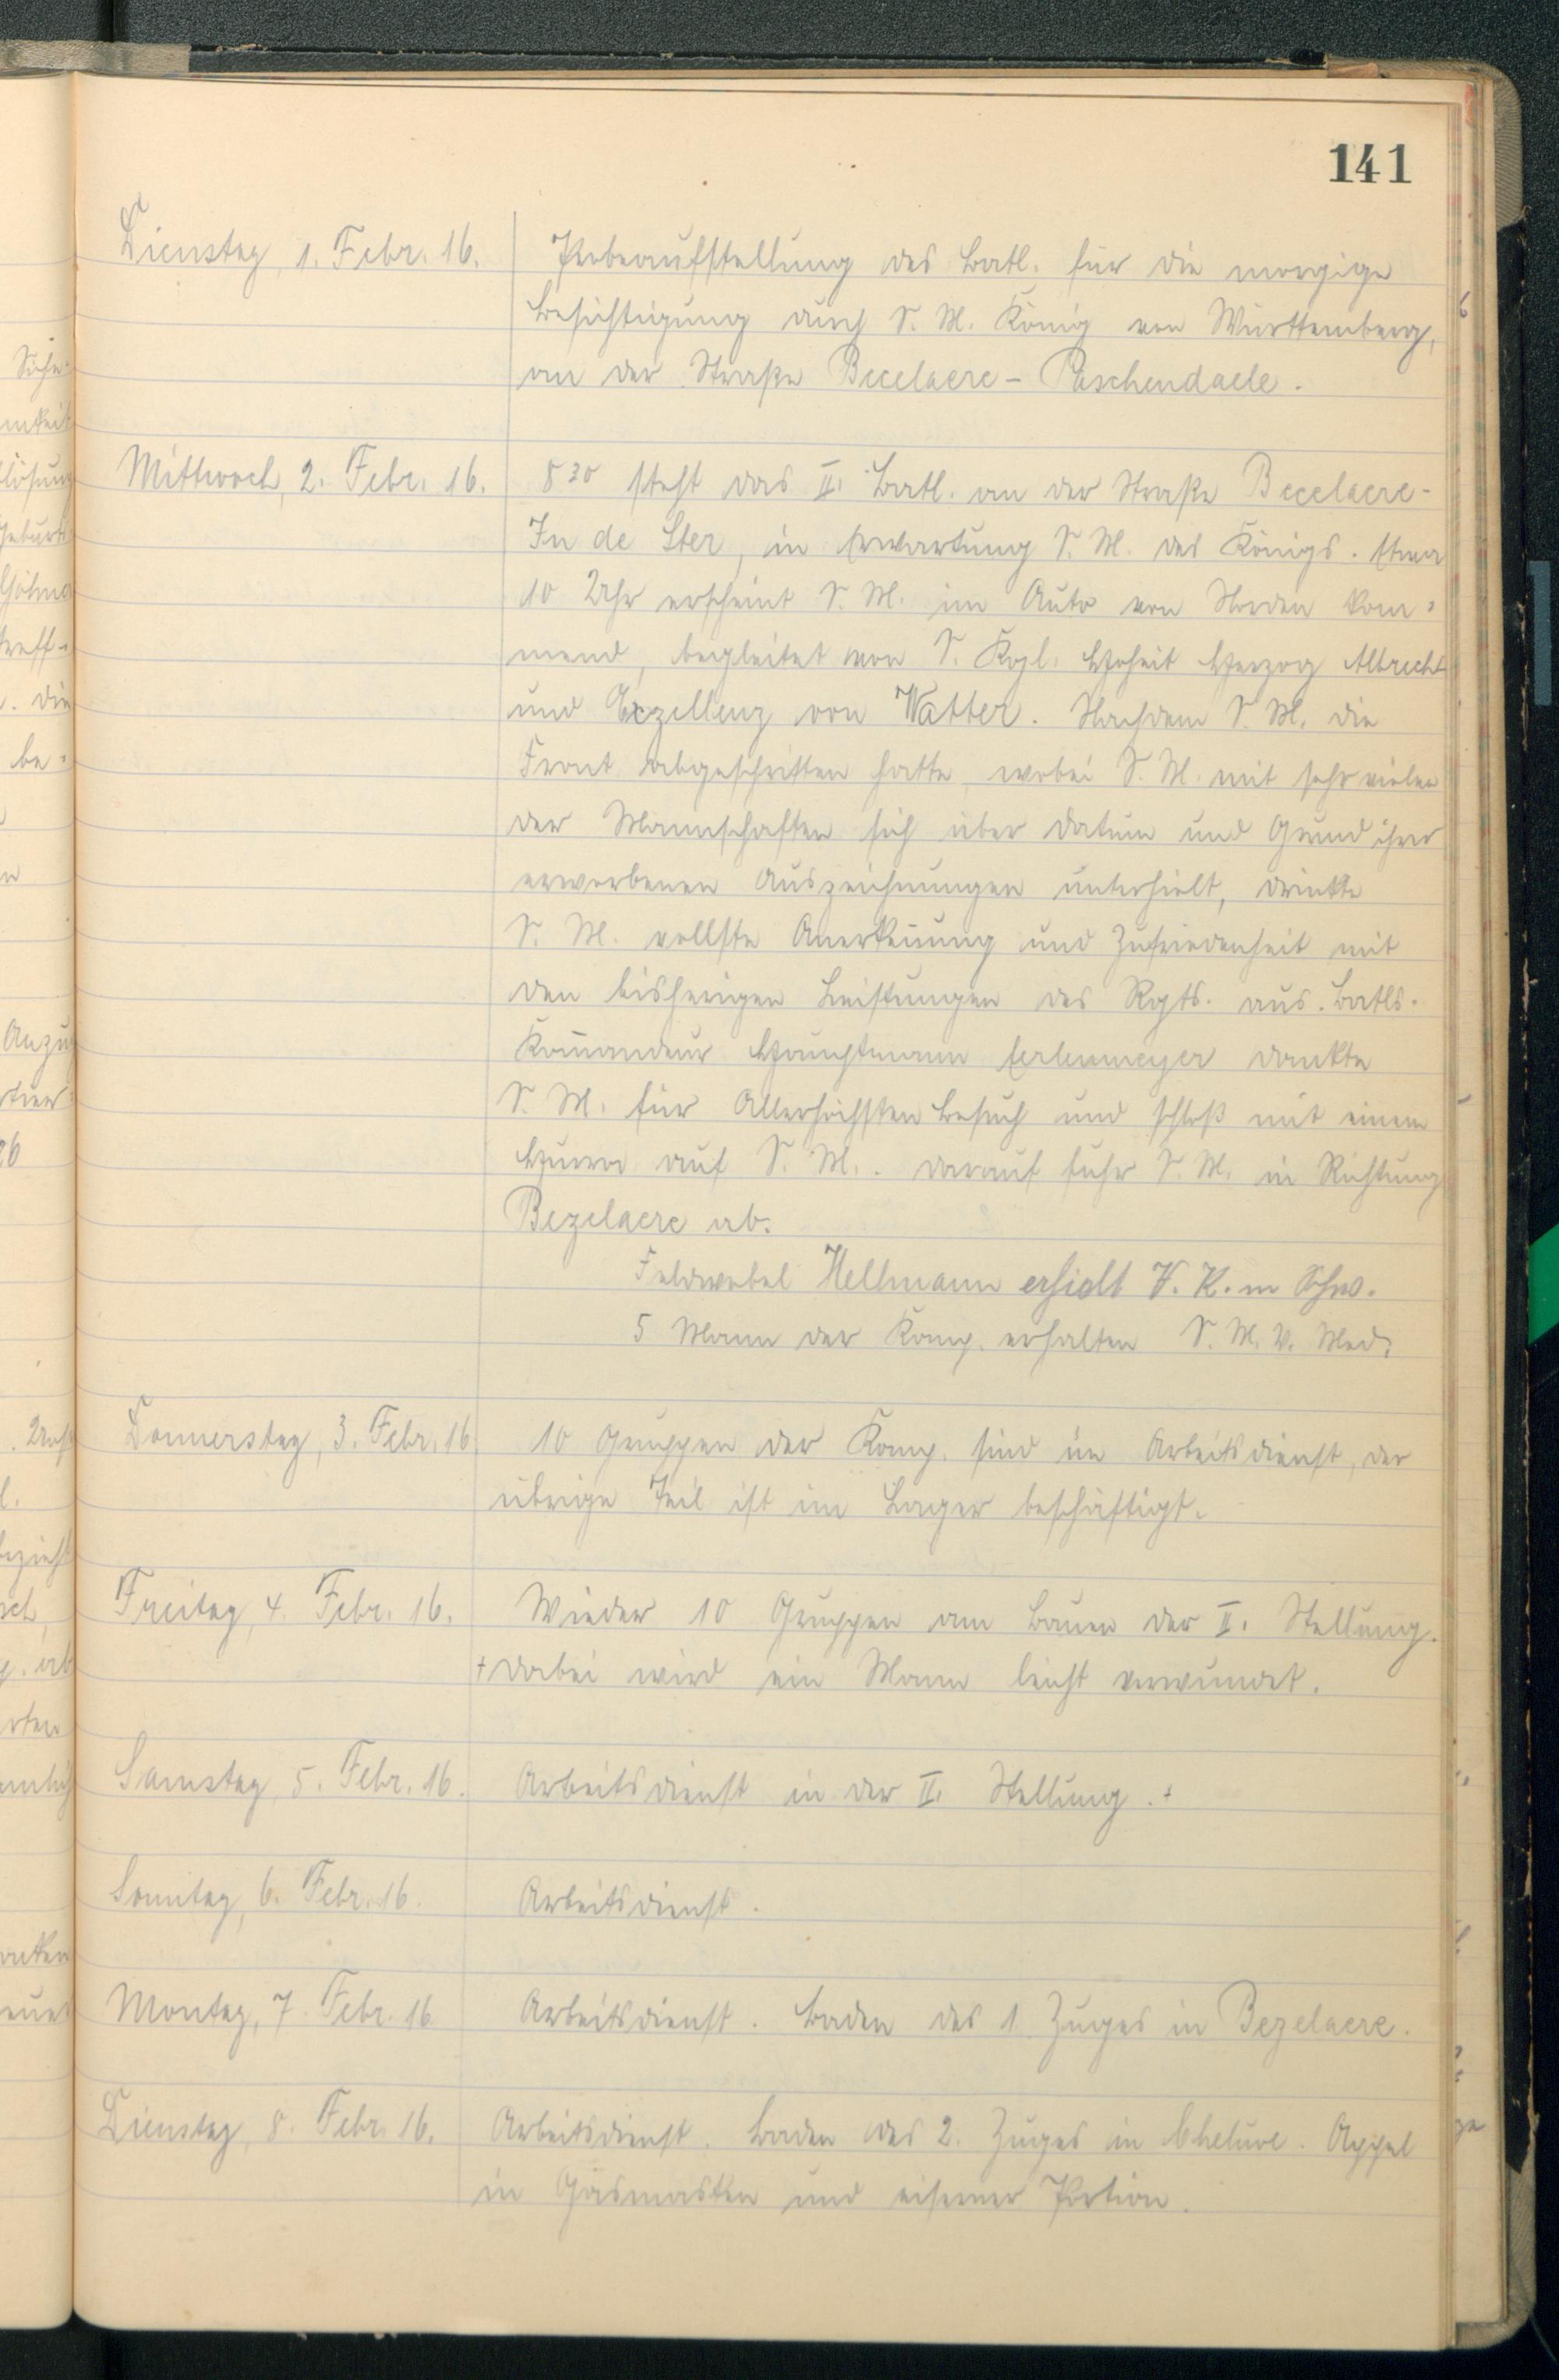 141
Dienstag, 1. Febr. 16. Probeaufstellung des Batl. für die morgige
Besichtigung durch S. M. König von Württemberg,
an der Straße Becelaere - Paschendaele.
Mittwoch, 2. Febr. 16. 8 30 steht das II. Batl. an der Straße Becelaere-
In de Ster, in Erwartung S. M. des Königs. Etwa
10 Uhr erscheint S. M. im Auto von Norden kom-
mend, begleitet von S. Kgl. Hoheit Herzog Albrecht
und Exzellenz von Watter. Nachdem S. M. die
Front abgeschritten hatte, wobei S. M. mit sehr vielen
der Mannschaften sich über Datum und Grund ihrer
erworbenen Auszeichnungen unterhielt, drückte
S. M. vollste Anerkennung und Zufriedenheit mit
den bisherigen Leistungen des Rgts. aus. Batls.
Komandeur Hauptmann Erlenmeyer dankte
S. M. für Allerhöchsten Besuch und schloß mit einem
Hurra auf S. M.. Darauf fuhr S. M. in Richtung
Bezelaere ab.
Feldwebel Hellmann erhielt V. K. m Schw.
5 Mann der Komp. erhalten S. M. V. Med.
Donnerstag, 3. Febr. 16. 10 Gruppen der Komp. sind im Arbeitsdienst, der
übrige Teil ist im Lager beschäftigt.
Freitag, 4. Febr. 16. Wieder 10 Gruppen am Bauen der II. Stellung.
+ Dabei wird ein Mann leicht verwundet.
Samstag, 5. Febr. 16. Arbeitsdienst in der II. Stellung. +
Sonntag, 6. Febr. 16. Arbeitsdienst.
Montag, 7. Febr. 16 Arbeitsdienst. Baden des 1. Zuges in Bezelaere.
Dienstag, 8. Febr. 16. Arbeitsdienst. Baden des 2. Zuges in Gheluve. Appel
in Gasmasken und eiserner Portion.